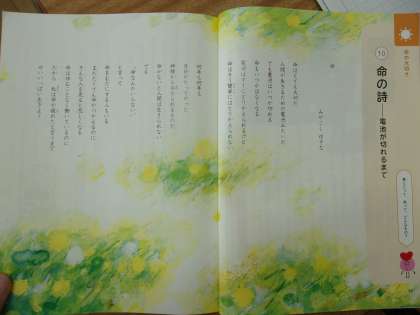 命の大切さ
10
命の詩―電池が切れるまで
命
みやこし ゆきな
命はとても大切だ
人間が生きるための電池みたいだ
でも電池はいつか切れる
命もいつかはなくなる
電池はすぐにとりかえられるけど
命はそう簡単にはとりかえられない
何年も何年も
月日がたってやっと
神様から与えられるものだ
命がないと人間は生きられない
でも
「命なんかいらない。」
と言って
命をむだにする人もいる
まだたくさん命がつかえるのに
そんな人を見ると悲しくなる
命は休むことなく働いているのに
だから 私は命が疲れたと言うまで
せいいっぱい生きよう